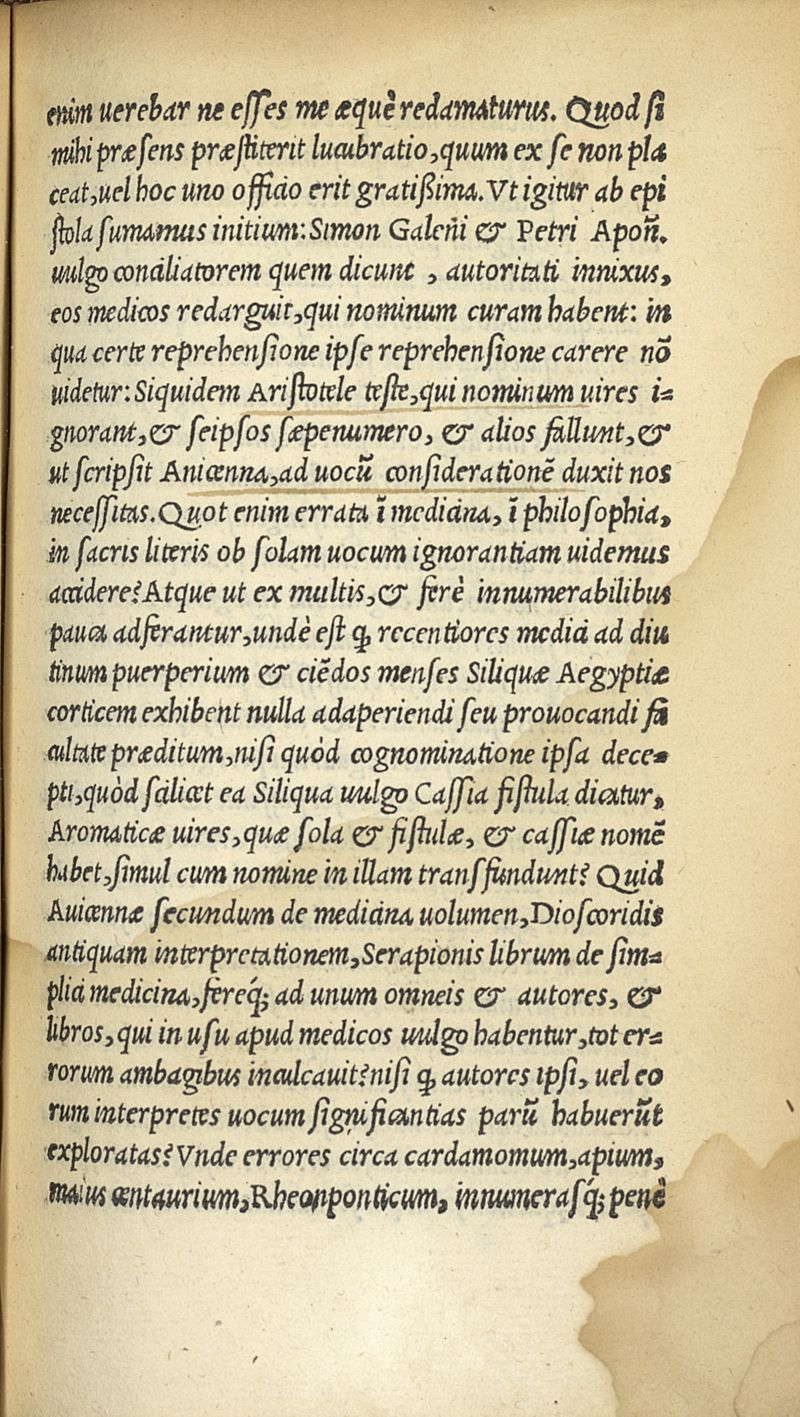 enim uerebar ne esses me æquè redamaturus. Quod si
mihi præsens præstiterit lucubratio, quum ex se non pla
ceat, uel hoc uno officio erit gratißima. Vt igitur ab epi
stola sumamus initium: Simon Galeñi & Petri Apoñ.
uulgo conciliatorem quem dicunt , autoritati innixus,
eos medicos redarguit, qui nominum curam habent: in
qua certe reprehensione ipse reprehensione carere nō
uidetur: Siquidem Aristotele teste, qui nominum uires i=
gnorant, & seipsos sæpenumero, & alios fallunt, &
ut scripsit Anicenna, ad uocū considerationē duxit nos
necessitas. Quot enim errata ī medicina, ī philosophia,
in sacris literis ob solam uocum ignorantiam uidemus
accidere? Atque ut ex multis, & ferè innumerabilibus
pauca adferantur, undè est ꝙ recentiores medici ad diu
tinum puerperium & ciēdos menses Siliquæ Aegyptiæ
corticem exhibent nulla adaperiendi seu prouocandi fa
cultate præditum, nisi quòd cognominatione ipsa dece=
pti, quòd scilicet ea Siliqua uulgo Cassia fistula dicatur,
Aromaticæ uires, quæ sola & fistulæ, & cassiæ nomē
habet, simul cum nomine in illam transfundunt? Quid
Auicennæ secundum de medicina uolumen, Dioscoridis
antiquam interpretationem, Serapionis librum de sim=
plici medicina, fereq́; ad unum omneis & autores, &
libros, qui in usu apud medicos uulgo habentur, tot er=
rorum ambagibus inculcauit? nisi ꝙ autores ipsi, uel eo
rum interpretes uocum significantias parū habuerūt
exploratas? Vnde errores circa cardamomum, apium,
maius centaurium, Rheonponticum, innumerasq́; penè